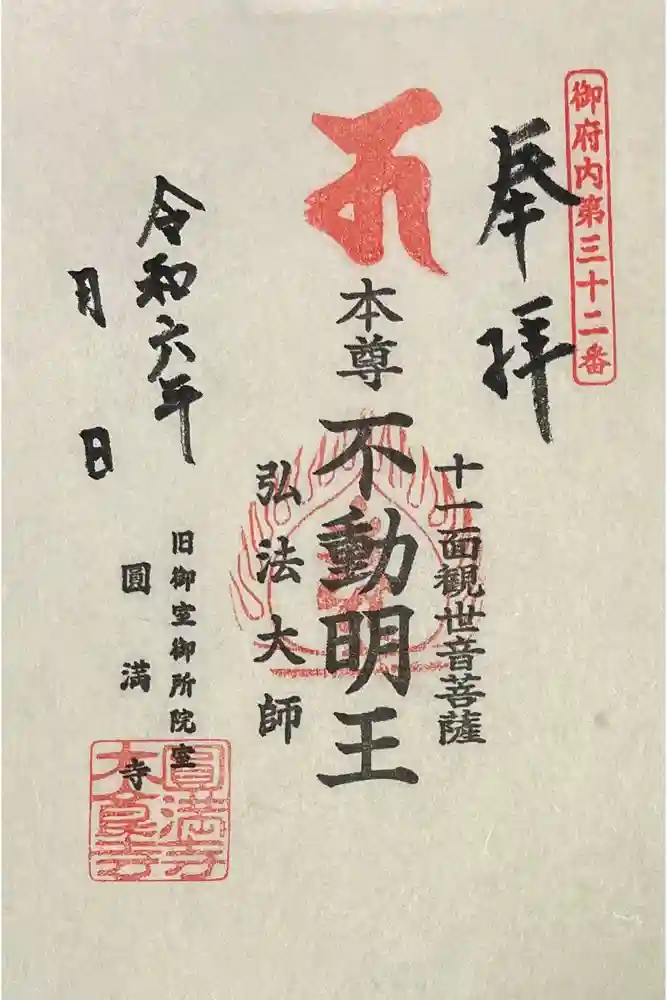 御府内第三十二番
奉拝
十一面観世音菩薩
本尊
不動明王
弘法大師
令和六年
月
日
旧御室御所院室
圓満寺
圓満寺